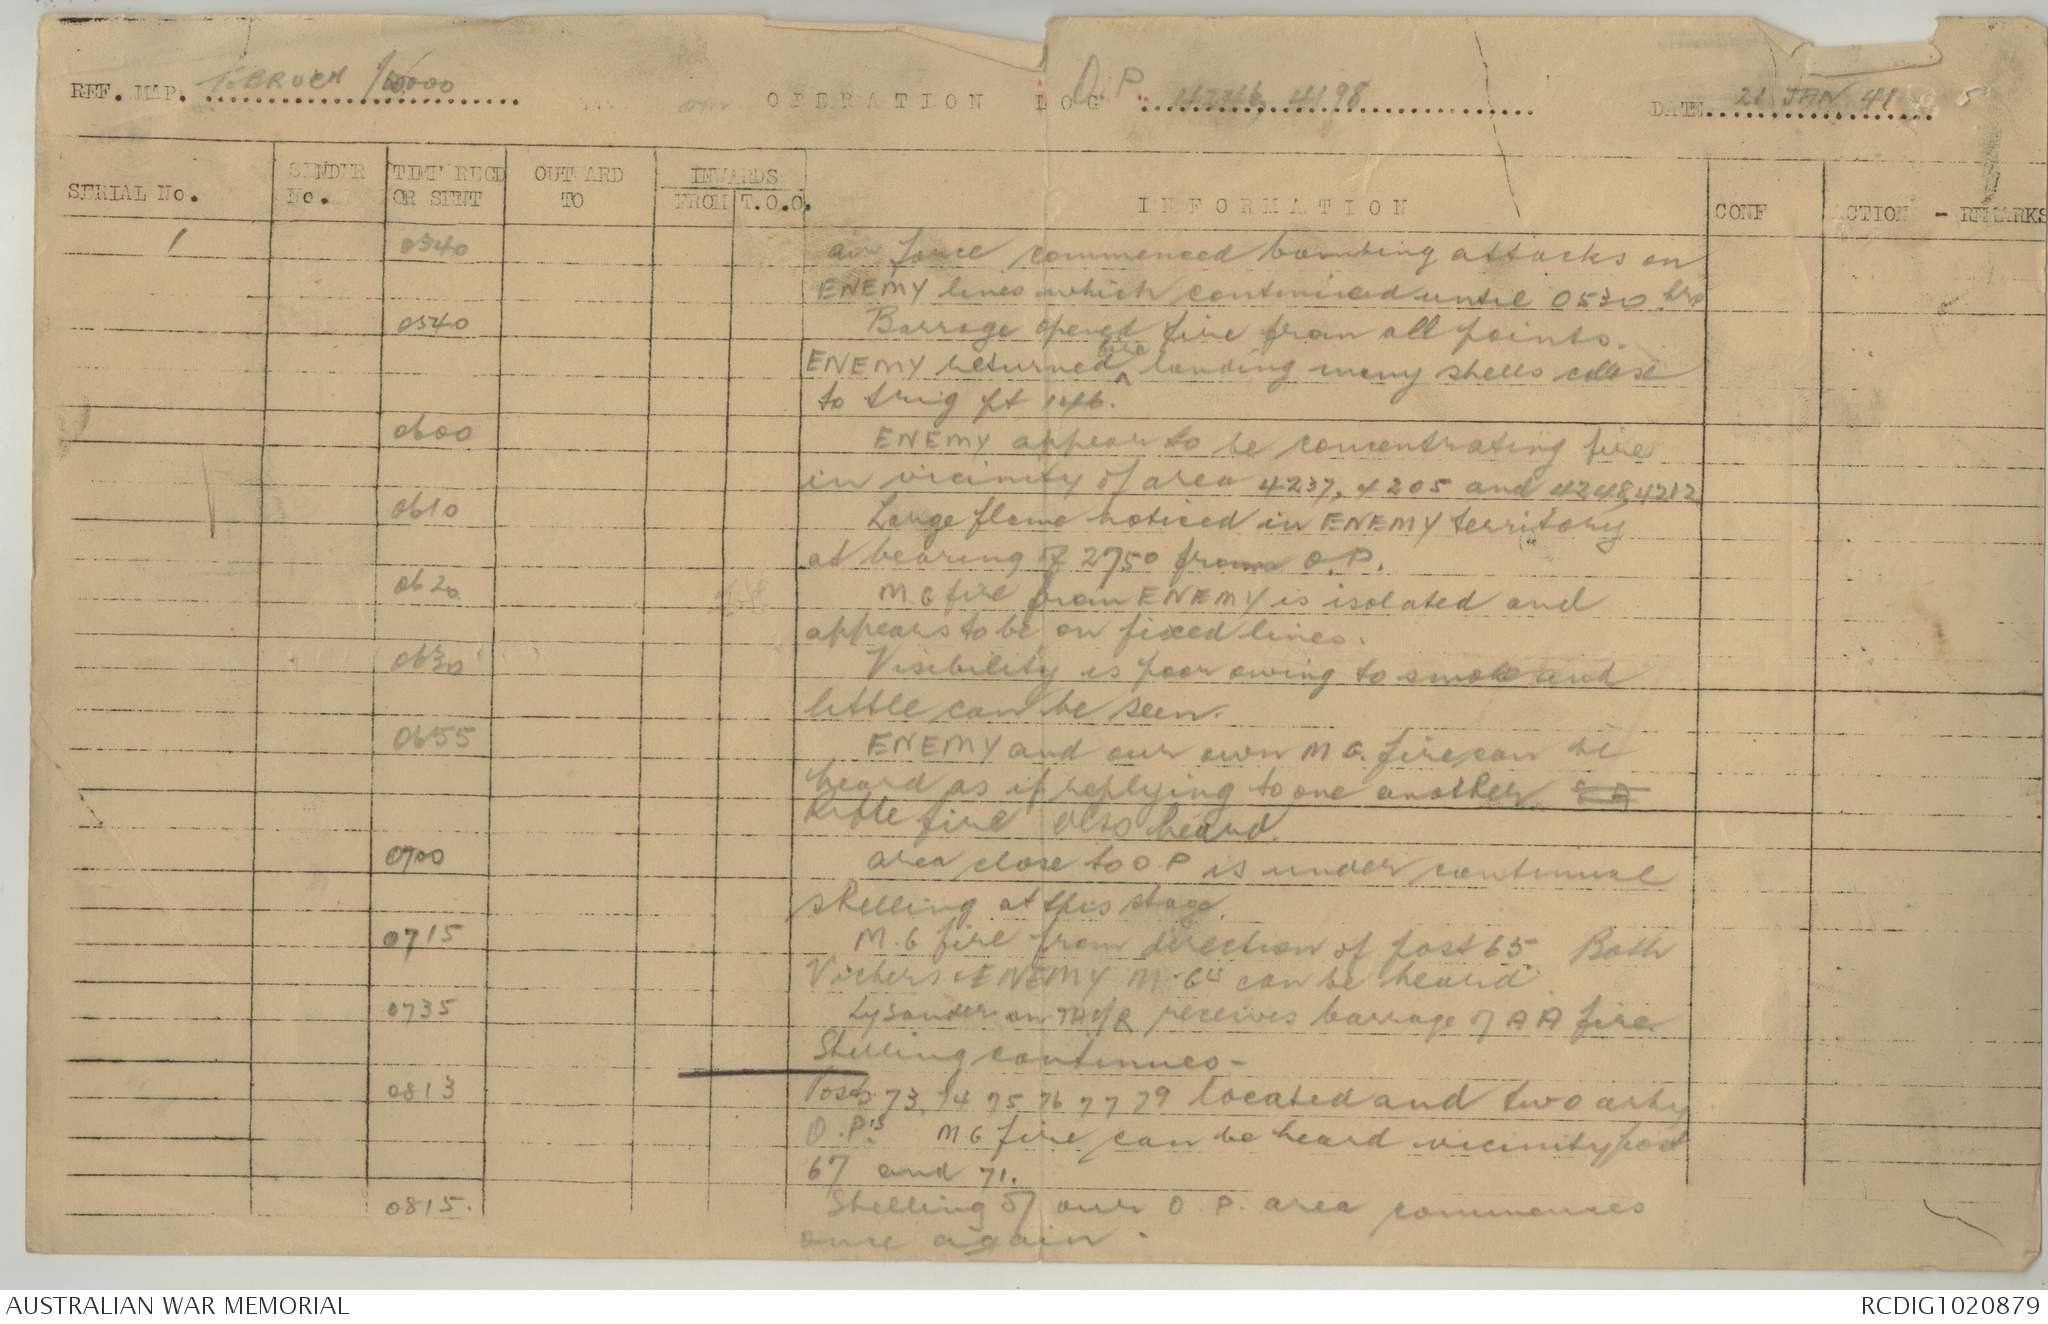 REF. MAP. TOBRUCH 1/100000 OPERATION LOG O.P. 4198 DATE. 21 JAN 41
SERIAL No. SENDER No. TIME RECD OR SENT OUTWARD TO INWARDS FROM T.O.O. INFORMATION CONF ACTION - REMARKS
1 0340 air force commenced bombing attacks on
ENEMY lines which continued until 0530 hrs
0540 Barrage opened fire from all points.
ENEMY returned fire landing many shells close
to trig pt 146.
0600 ENEMY appear to be concentrating fire
in vicinity of area 4237, 4205 and 4248, 4212
0610 Large flame noticed in ENEMY territory
at bearing of 2750 from O.P.
0620 M G fire from ENEMY is isolated and
appears to be on fixed lines.
0630 Visibility is poor owing to smoke and
little can be seen.
0655 ENEMY and our own M G. fire can be
heard as if replying to one another
Rifle fire also heard.
0700 area close to O P is under continual
shelling at this stage.
0715 M.G fire from direction of post 65 Both
Vickers & ENEMY M.Gs can be heard
0735 Lysander on TAC/R receives barrage of A A fire.
Shelling continues -
0813 Posts 73, 74 75 76 77 79 located and two arty
O.P's M G fire can be heard vicinity post
67 and 71.
0815. Shelling of our O P. area commences
once again.
AUSTRALIAN WAR MEMORIAL RCDIG1020879